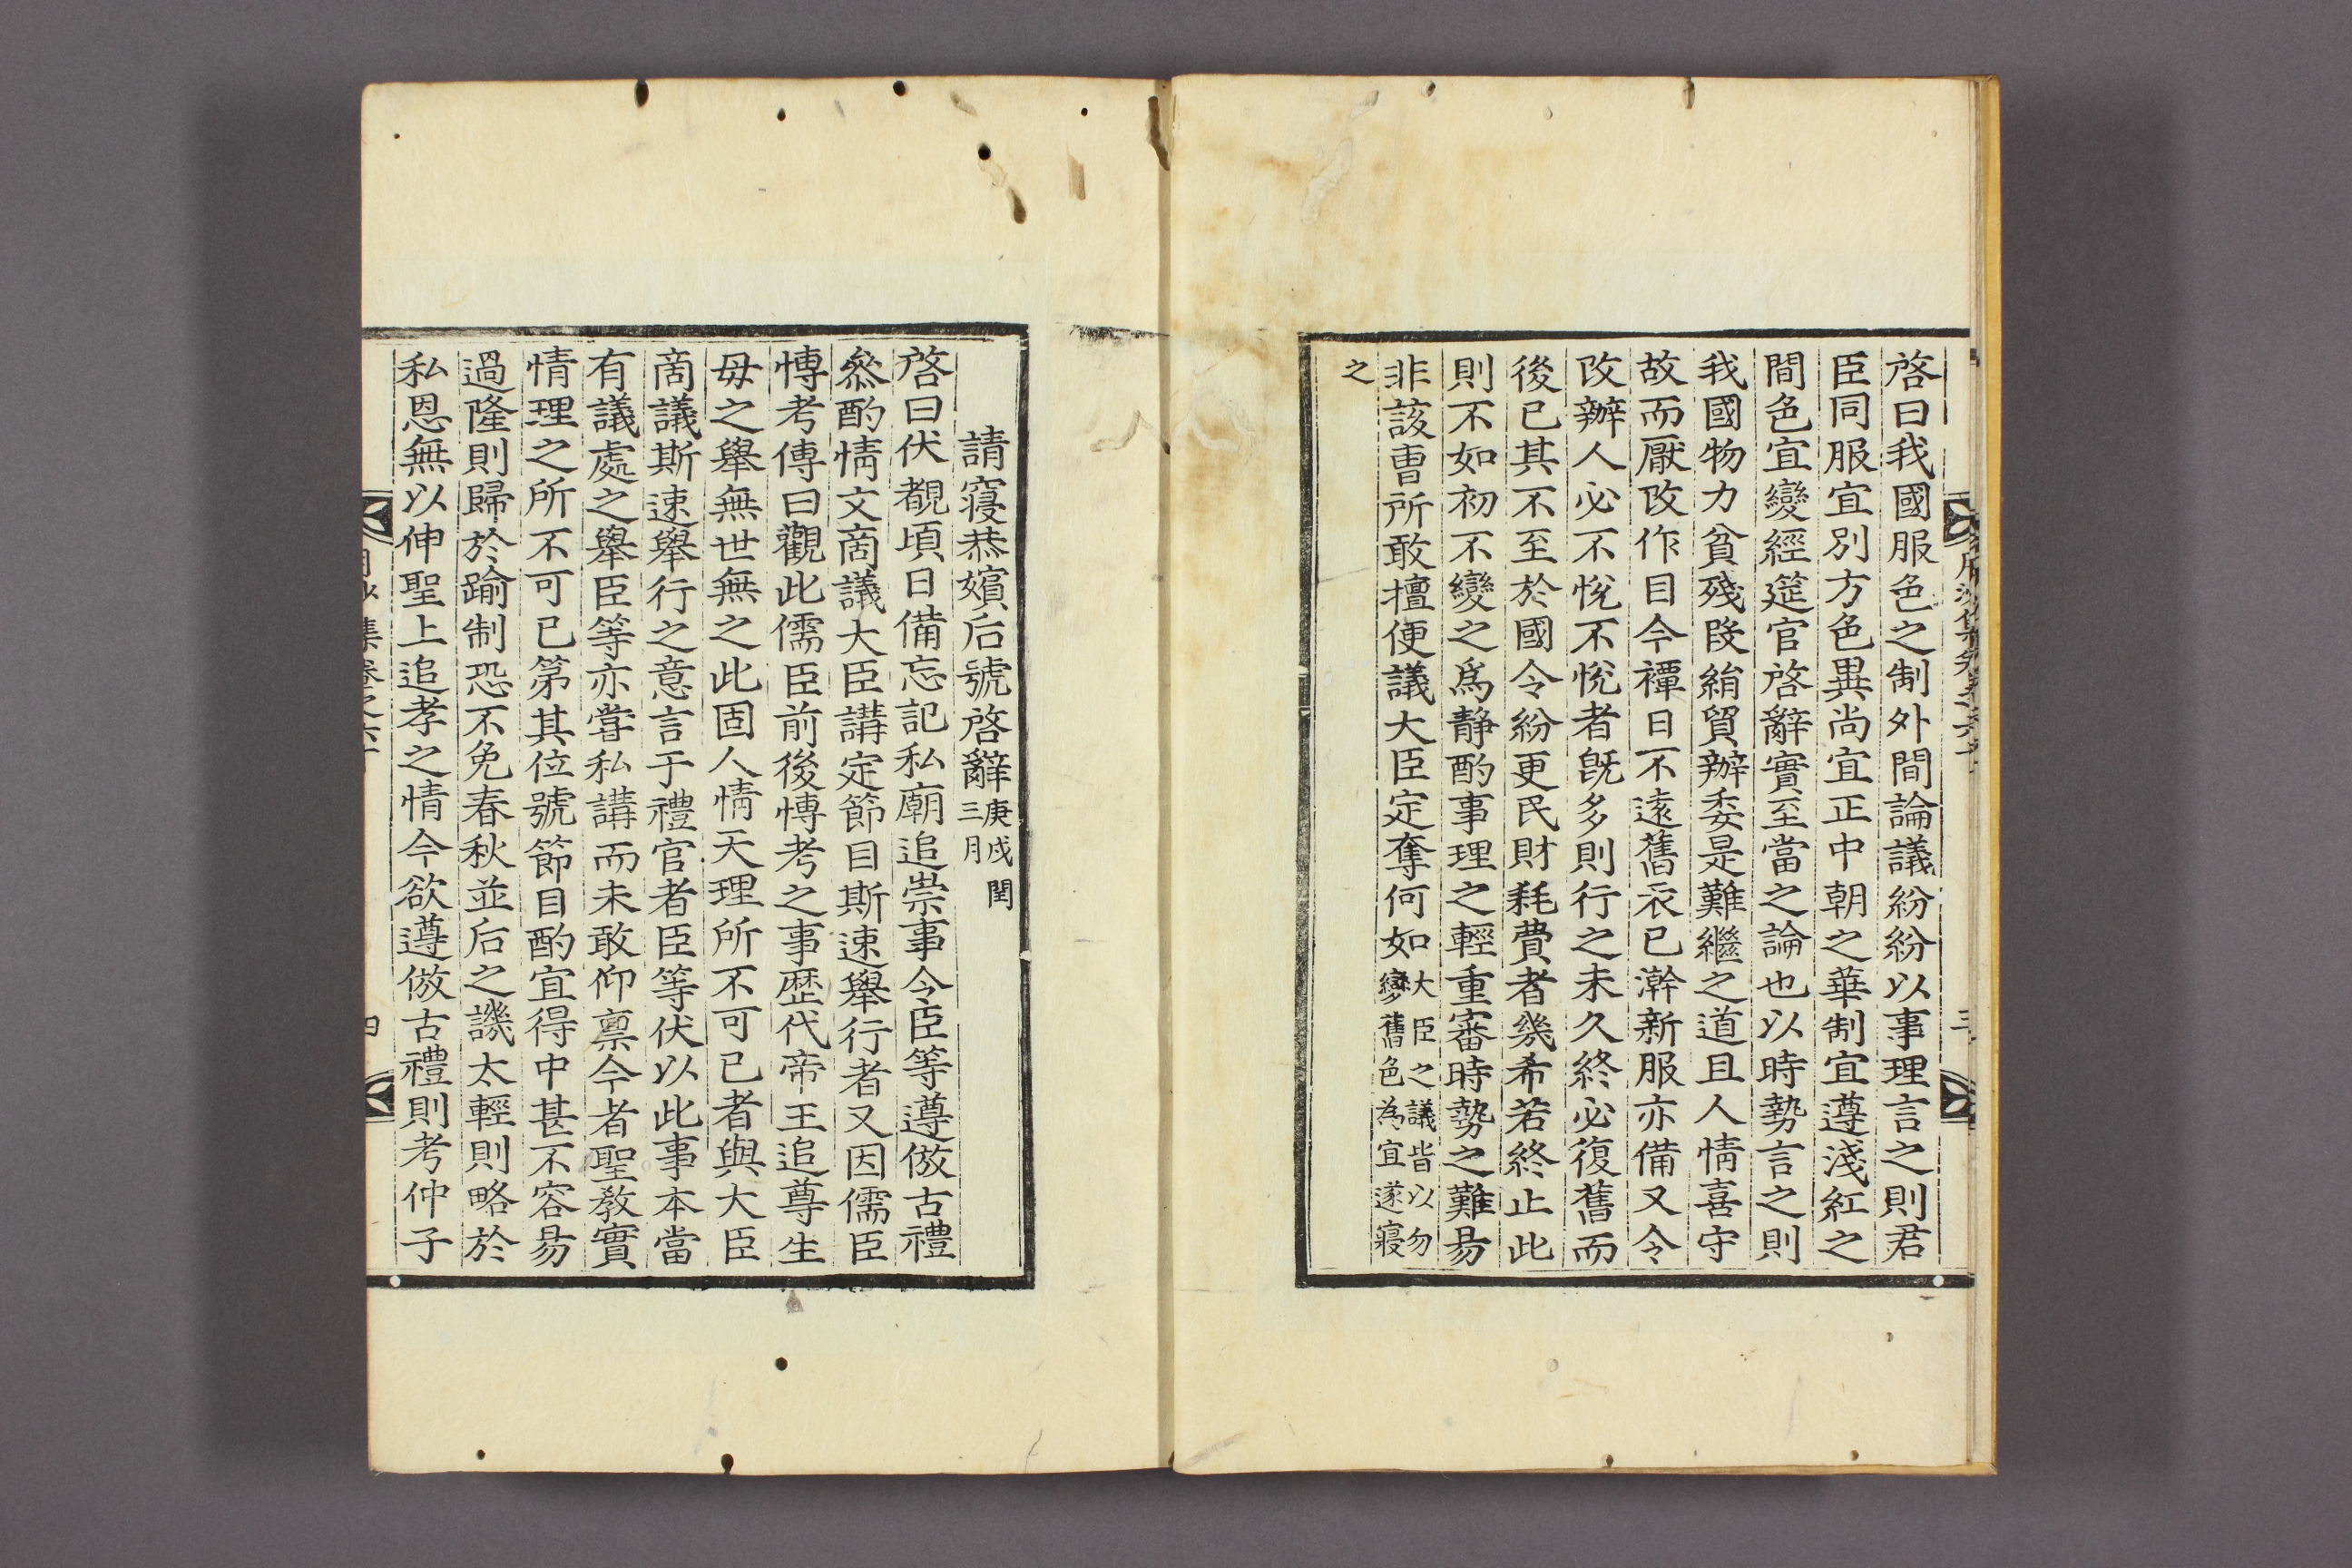 啓曰我國服色之制外間論議紛紛以事理言之則君
臣同服宜別方色異尚宜正中朝之華制宜遵淺紅之
間色宜變經筵官啓辭實至當之論也以時勢言之則
我國物力貧殘段絹貿辦委是難繼之道且人情喜守
故而厭改作目今禫日不遠舊衣已澣新服亦備又令
改辦人必不悅不悅者旣多則行之未久終必復舊而
後已其不至於國令紛更民財耗費者幾希若終止此
則不如初不變之爲静酌事理之輕重審時勢之難易
非該曹所敢擅便議大臣定奪何如大臣之議皆以勿
變舊色為宜遂寢
之
請寢恭嬪后號啓辭庚戌閏
三月
啓曰伏覩頃日備忘記私廟追崇事令臣等遵倣古禮
叅酌情文商議大臣講定節目斯速擧行者又因儒臣
博考傳曰觀此儒臣前後博考之事歷代帝王追尊生
母之擧無世無之此固人情天理所不可已者與大臣
商議斯速擧行之意言于禮官者臣等伏以此事本當
有議處之擧臣等亦嘗私講而未敢仰禀今者聖敎實
情理之所不可已第其位號節目酌宜得中甚不容易
過隆則歸於踰制恐不免春秋並后之譏太輕則略於
私恩無以伸聖上追孝之情今欲遵倣古禮則考仲子